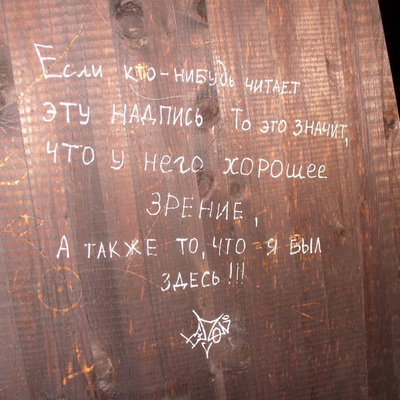 Если кто-нибудь читает
эту надпись, То это значит,
что у него хорошее
зрение,
А также то, что я был
здесь!!!